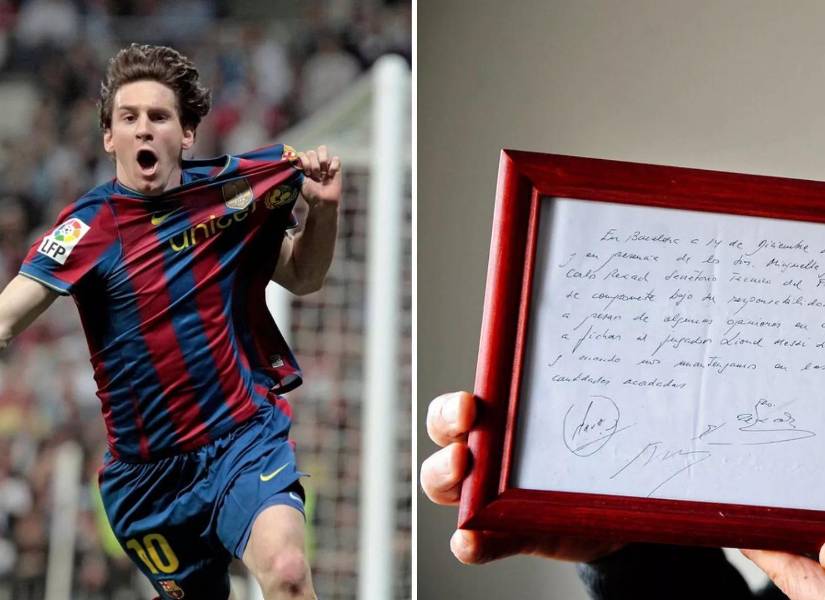 LFP
unicef
10
En Barcelona a 14 de Diciembre
y en presencia de los Srs. Minguella y
Carlos Rexach Secretario Técnico del F
se compromete bajo su responsabilidad
a pesar de algunas opiniones en
a fichar al jugador Lionel Messi
y cuando nos mantengamos en las
cantidades acordadas